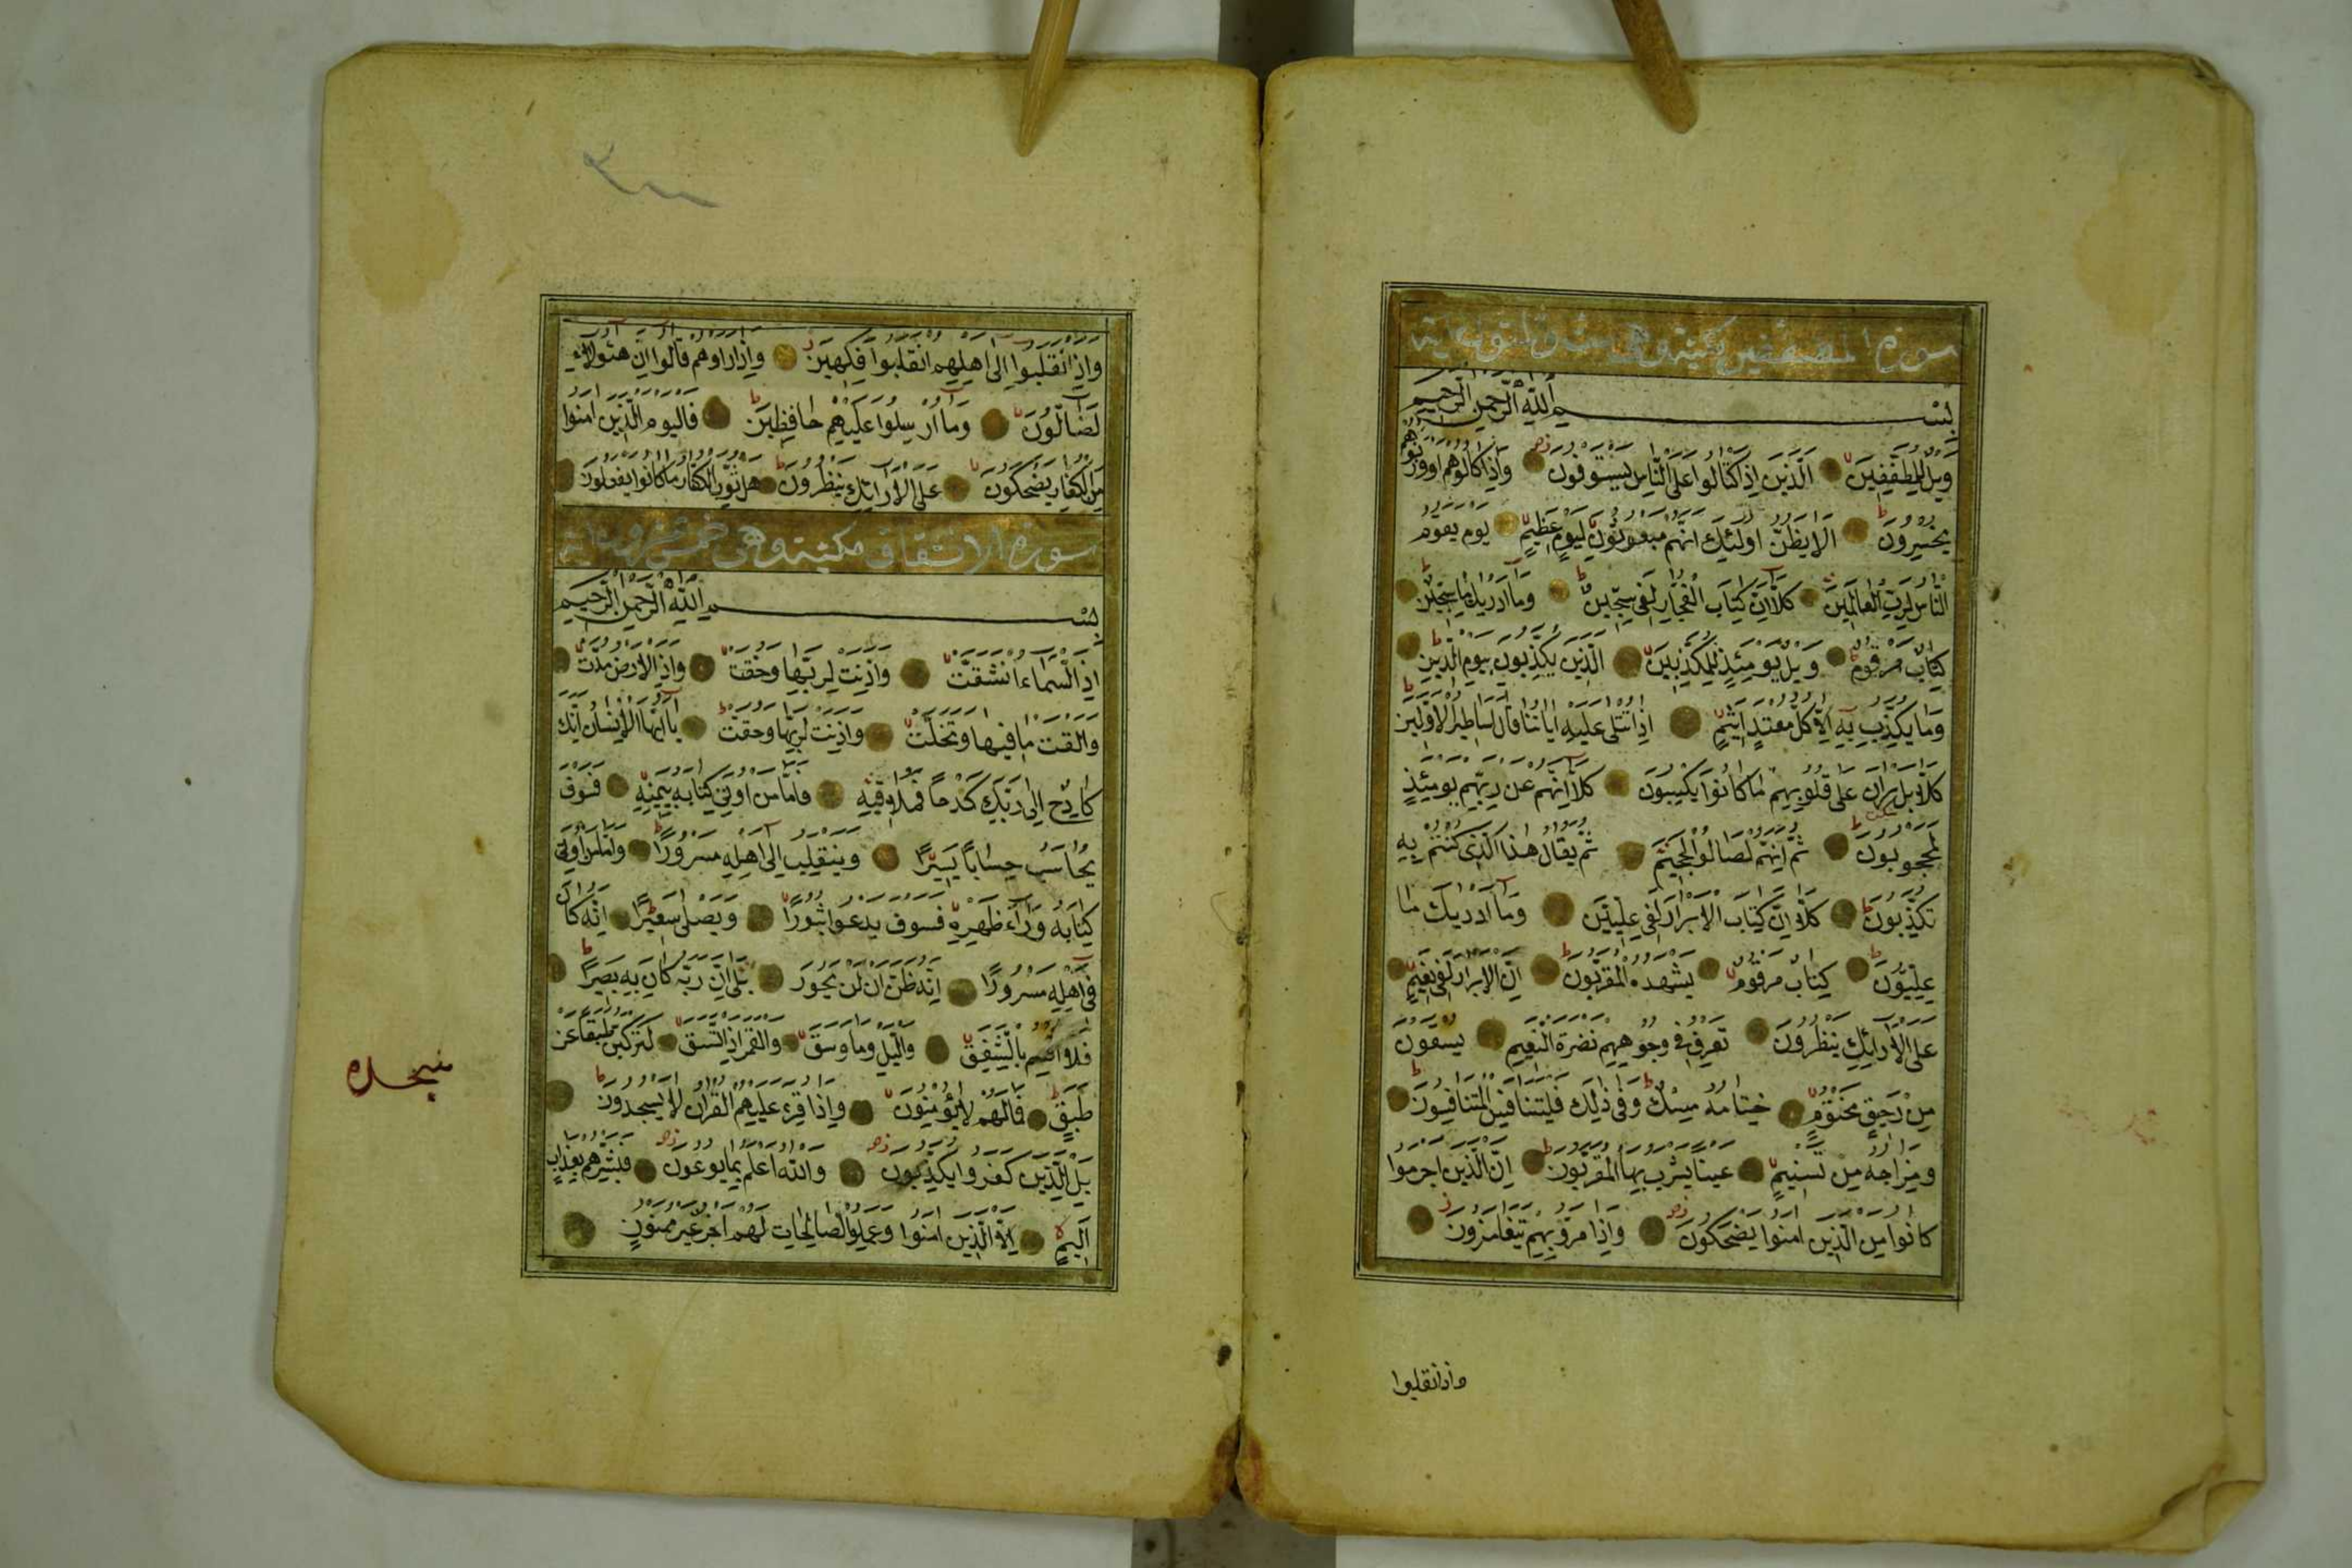 سورة المطففين مكية وهى ست وثلثون اية
بسم الله الرحمن الرحيم
وَيْلٌ لِلْمُطَفِّفِينَ الَّذِينَ اِذَا كْتَالُوا عَلَى النَّاسِ يَسْتَوْفُونَ وَاِذَا كَالُوهُمْ اَوْ وَزَنُوهُمْ
يُخْسِرُونَ اَلَا يَظُنُّ اُولٰئِكَ اَنَّهُمْ مَبْعُوثُونَ لِيَوْمٍ عَظِيمٍ يَوْمَ يَقُومُ
النَّاسُ لِرَبِّ الْعَالَمِينَ كَلَّا اِنَّ كِتَابَ الْفُجَّارِ لَفِى سِجِّينٍ وَمَا اَدْرٰيكَ مَا سِجِّينٌ
كِتَابٌ مَرْقُومٌ وَيْلٌ يَوْمَئِذٍ لِلْمُكَذِّبِينَ الَّذِينَ يُكَذِّبُونَ بِيَوْمِ الدِّينِ
وَمَا يُكَذِّبُ بِهِ اِلَّا كُلُّ مُعْتَدٍ اَثِيمٍ اِذَا تُتْلٰى عَلَيْهِ اٰيَاتُنَا قَالَ اَسَاطِيرُ الْاَوَّلِينَ
كَلَّا بَلْ رَانَ عَلٰى قُلُوبِهِمْ مَا كَانُوا يَكْسِبُونَ كَلَّا اِنَّهُمْ عَنْ رَبِّهِمْ يَوْمَئِذٍ
لَمَحْجُوبُونَ ثُمَّ اِنَّهُمْ لَصَالُوا الْجَحِيمِ ثُمَّ يُقَالُ هٰذَا الَّذِى كُنْتُمْ بِهِ
تُكَذِّبُونَ كَلَّا اِنَّ كِتَابَ الْاَبْرَارِ لَفِى عِلِّيِّينَ وَمَا اَدْرٰيكَ مَا
عِلِّيُّونَ كِتَابٌ مَرْقُومٌ يَشْهَدُهُ الْمُقَرَّبُونَ اِنَّ الْاَبْرَارَ لَفِى نَعِيمٍ
عَلَى الْاَرَائِكِ يَنْظُرُونَ تَعْرِفُ فِى وُجُوهِهِمْ نَضْرَةَ النَّعِيمِ يُسْقَوْنَ
مِنْ رَحِيقٍ مَخْتُومٍ خِتَامُهُ مِسْكٌ وَفِى ذٰلِكَ فَلْيَتَنَافَسِ الْمُتَنَافِسُونَ
وَمِزَاجُهُ مِنْ تَسْنِيمٍ عَيْنًا يَشْرَبُ بِهَا الْمُقَرَّبُونَ اِنَّ الَّذِينَ اَجْرَمُوا
كَانُوا مِنَ الَّذِينَ اٰمَنُوا يَضْحَكُونَ وَاِذَا مَرُّوا بِهِمْ يَتَغَامَزُونَ
واذا نقلبوا
وَاِذَا نْقَلَبُوا اِلٰى اَهْلِهِمُ انْقَلَبُوا فَكِهِينَ وَاِذَا رَاَوْهُمْ قَالُوا اِنَّ هٰؤُلَاءِ
لَضَالُّونَ وَمَا اُرْسِلُوا عَلَيْهِمْ حَافِظِينَ فَالْيَوْمَ الَّذِينَ اٰمَنُوا
مِنَ الْكُفَّارِ يَضْحَكُونَ عَلَى الْاَرَائِكِ يَنْظُرُونَ هَلْ ثُوِّبَ الْكُفَّارُ مَا كَانُوا يَفْعَلُونَ
سورة الانشقاق مكية وهى خمس وعشرون اية
بسم الله الرحمن الرحيم
اِذَا السَّمَاءُ انْشَقَّتْ وَاَذِنَتْ لِرَبِّهَا وَحُقَّتْ وَاِذَا الْاَرْضُ مُدَّتْ
وَاَلْقَتْ مَا فِيهَا وَتَخَلَّتْ وَاَذِنَتْ لِرَبِّهَا وَحُقَّتْ يَا اَيُّهَا الْاِنْسَانُ اِنَّكَ
كَادِحٌ اِلٰى رَبِّكَ كَدْحًا فَمُلَاقِيهِ فَاَمَّا مَنْ اُوتِىَ كِتَابَهُ بِيَمِينِهِ فَسَوْفَ
يُحَاسَبُ حِسَابًا يَسِيرًا وَيَنْقَلِبُ اِلٰى اَهْلِهِ مَسْرُورًا وَاَمَّا مَنْ اُوتِىَ
كِتَابَهُ وَرَاءَ ظَهْرِهِ فَسَوْفَ يَدْعُوا ثُبُورًا وَيَصْلٰى سَعِيرًا اِنَّهُ كَانَ
فِى اَهْلِهِ مَسْرُورًا اِنَّهُ ظَنَّ اَنْ لَنْ يَحُورَ بَلٰى اِنَّ رَبَّهُ كَانَ بِهِ بَصِيرًا
فَلَا اُقْسِمُ بِالشَّفَقِ وَالَّيْلِ وَمَا وَسَقَ وَالْقَمَرِ اِذَا اتَّسَقَ لَتَرْكَبُنَّ طَبَقًا عَنْ
طَبَقٍ فَمَا لَهُمْ لَا يُؤْمِنُونَ وَاِذَا قُرِئَ عَلَيْهِمُ الْقُرْاٰنُ لَا يَسْجُدُونَ
بَلِ الَّذِينَ كَفَرُوا يُكَذِّبُونَ وَاللّٰهُ اَعْلَمُ بِمَا يُوعُونَ فَبَشِّرْهُمْ بِعَذَابٍ
اَلِيمٍ اِلَّا الَّذِينَ اٰمَنُوا وَعَمِلُوا الصَّالِحَاتِ لَهُمْ اَجْرٌ غَيْرُ مَمْنُونٍ
سجده